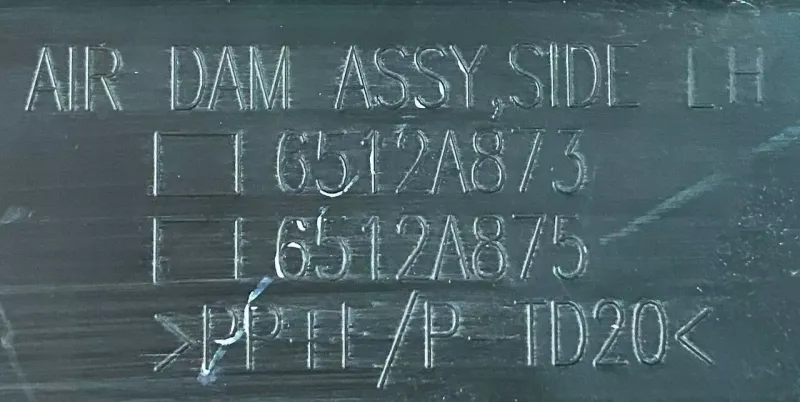 AIR DAM ASSY,SIDE LH
□ 6512A873
□ 6512A875
>PP+E/P-TD20<